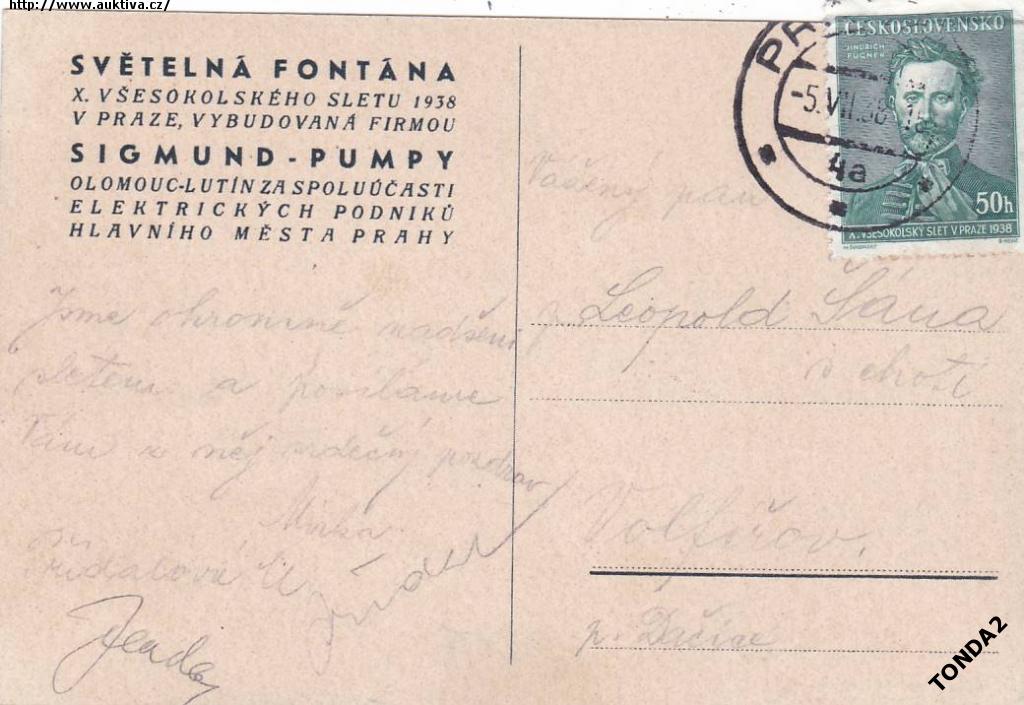 http://www.auktiva.cz/
SVĚTELNÁ FONTÁNA
X. VŠESOKOLSKÉHO SLETU 1938
V PRAZE, VYBUDOVANÁ FIRMOU
SIGMUND-PUMPY
OLOMOUC-LUTÍN ZA SPOLUÚČASTI
ELEKTRICKÝCH PODNIKŮ
HLAVNÍHO MĚSTA PRAHY
Jsme ohromně nadšeni
sletem a posíláme
Vám z něj srdečný pozdrav
Mirka
ČESKOSLOVENSKO
JINDŘICH
FÜGNER
50h
X. VŠESOKOLSKÝ SLET V PRAZE 1938
-5.VII.38
4a
Vážený pán
Leopold Šána
s chotí
Volfířov.
p. Dačice
TONDA2